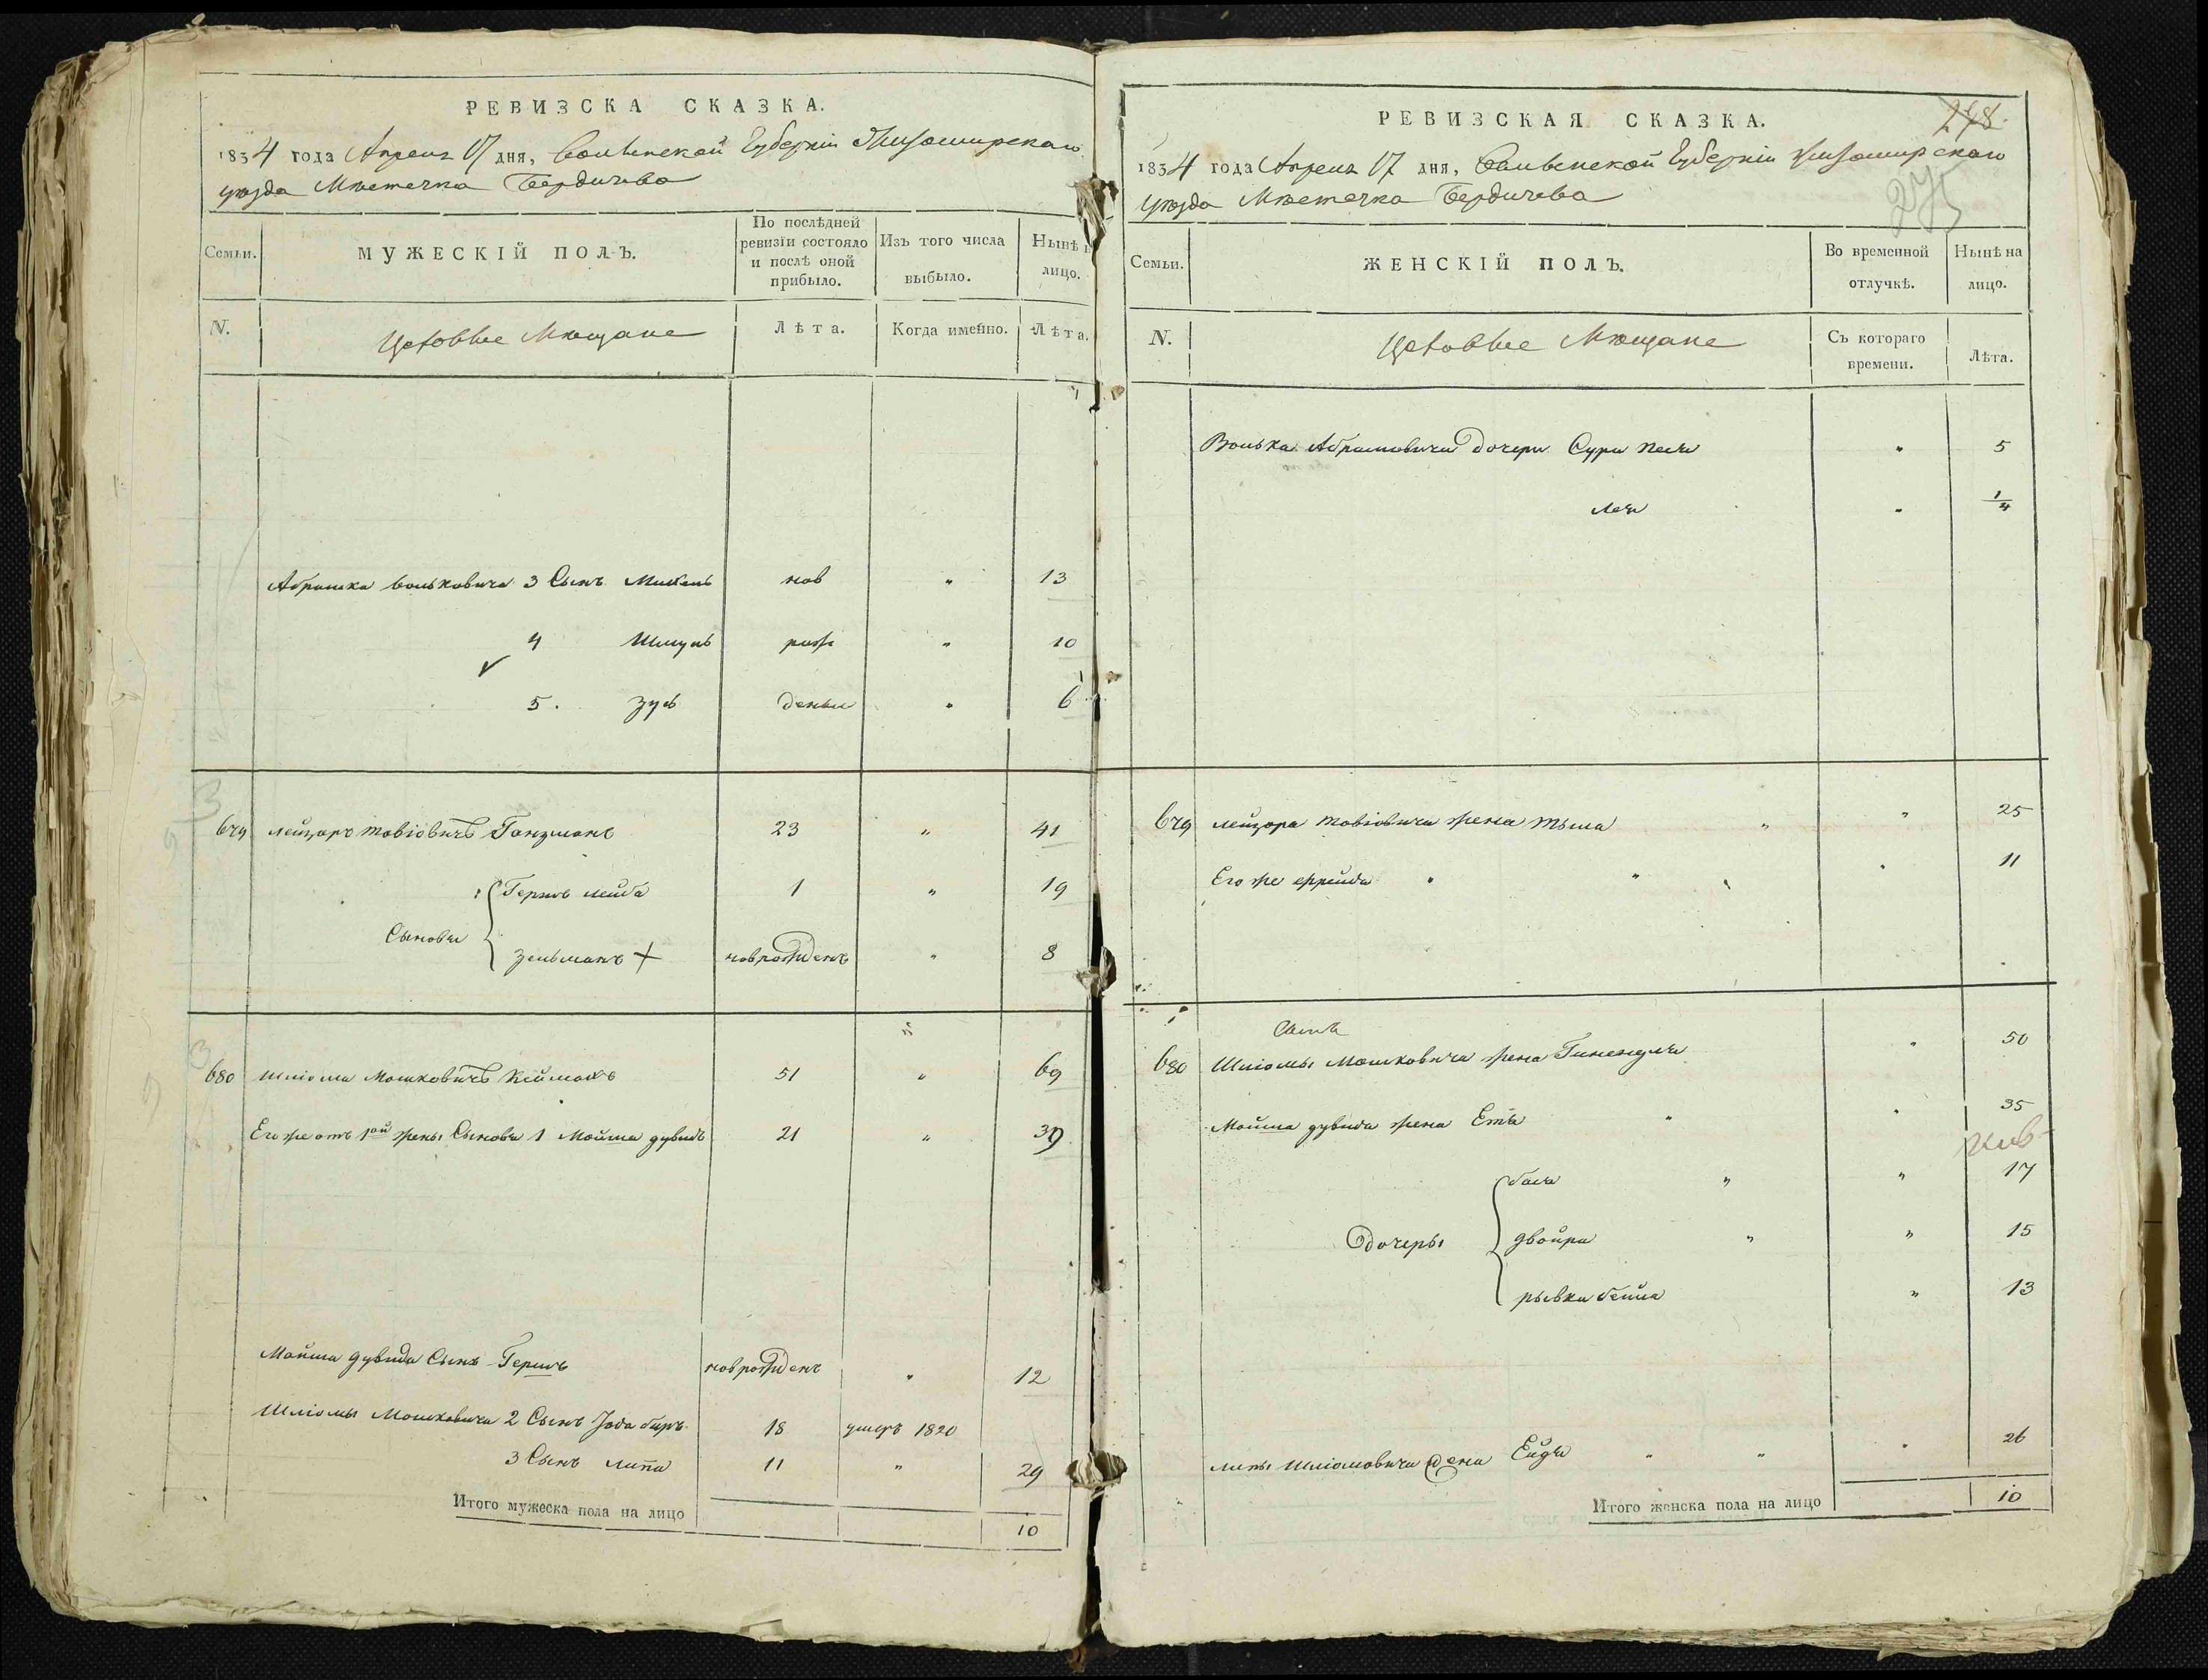 РЕВИЗСКА СКАЗКА.
1834 года Апреля 17 дня, Волынской Губерніи Житомирскаго
уѣзда Мѣстечка Бердичева
Семьи. МУЖЕСКІЙ ПОЛЪ. По послѣдней ревизіи состояло и послѣ оной прибыло. Изъ того числа выбыло. Нынѣ н лицо.
N. Цеховые Мѣщане Лѣта. Когда именно. Лѣта.
Абрамка Вольковича 3 Сынъ нов " 13
4 Шмуль рож " 10
5. Зусь деные " 6
679 Лейзоръ товіовичъ Ганзманъ 23 " 41
Сыновья Гершъ лейба 1 " 19
Зельманъ + новрожденъ " 8
680 Шліома Мошковичъ 51 " 69
Его же отъ 1ой жены Сыновья 1 Мойша дувидъ 21 " 39
Мойша дувида Сынъ Гершъ новрожденъ " 12
Шліомы Мошковича 2 Сынъ 18 умеръ 1820
3 Сынъ липа 11 " 29
Итого мужеска пола на лицо 10
248.
РЕВИЗСКАЯ СКАЗКА.
1834 года Апреля 17 дня, Волынской Губерніи Житомирскаго
275
уѣзда Мѣстечка Бердичева
Семьи. ЖЕНСКІЙ ПОЛЪ. Во временной отлучкѣ. Нынѣ на лицо.
N. Цеховые Мѣщане Съ котораго времени. Лѣта.
Волька Абрамовича дочери Сура песя " 5
Лея " 1/4
679 лейзора товіовича жена " " 25
Его же " " " 11
680 Шліомы Мошковича жена " 50
Мойша дувида жена Етя " " 35
Дочеры бася " " 17
двойра " " 15
рывка бейла " 13
липы Шліомовича жена Ейдя " " " 26
Итого женска пола на лицо 10